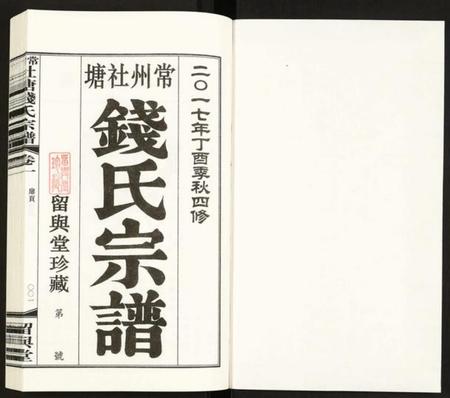 二〇一七年丁酉季秋四修
常州社塘
錢氏宗譜
留與堂珍藏
第 號
常州社塘錢氏宗譜
卷一
扉頁
〇〇一
留與堂